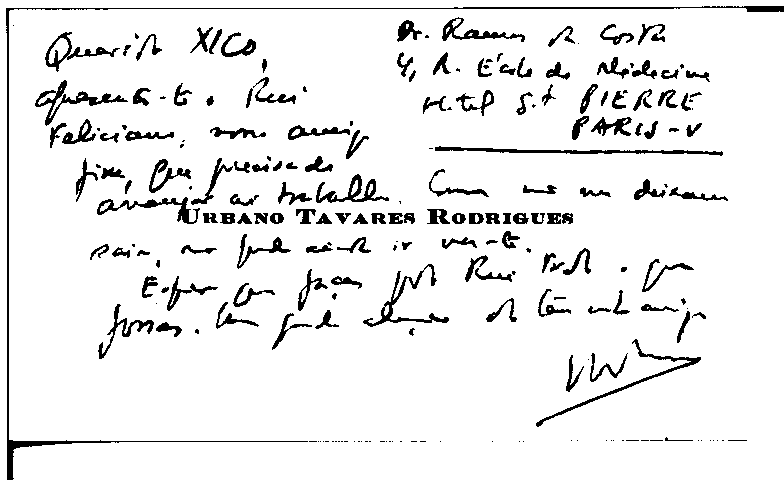 Querido XICO,
apresento-te o Rui
Feliciano, nosso amigo
fixe, que precisa de
arranjar aí trabalho. Como me não deixam
URBANO TAVARES RODRIGUES
sair, não pude ainda ir ver-te.
Espero que faças pelo Rui tudo o que
possas. Um grande abraço do teu amigo
Dr. Ramos da Costa
4, R. École de Médecine
Hotel St PIERRE
PARIS-V